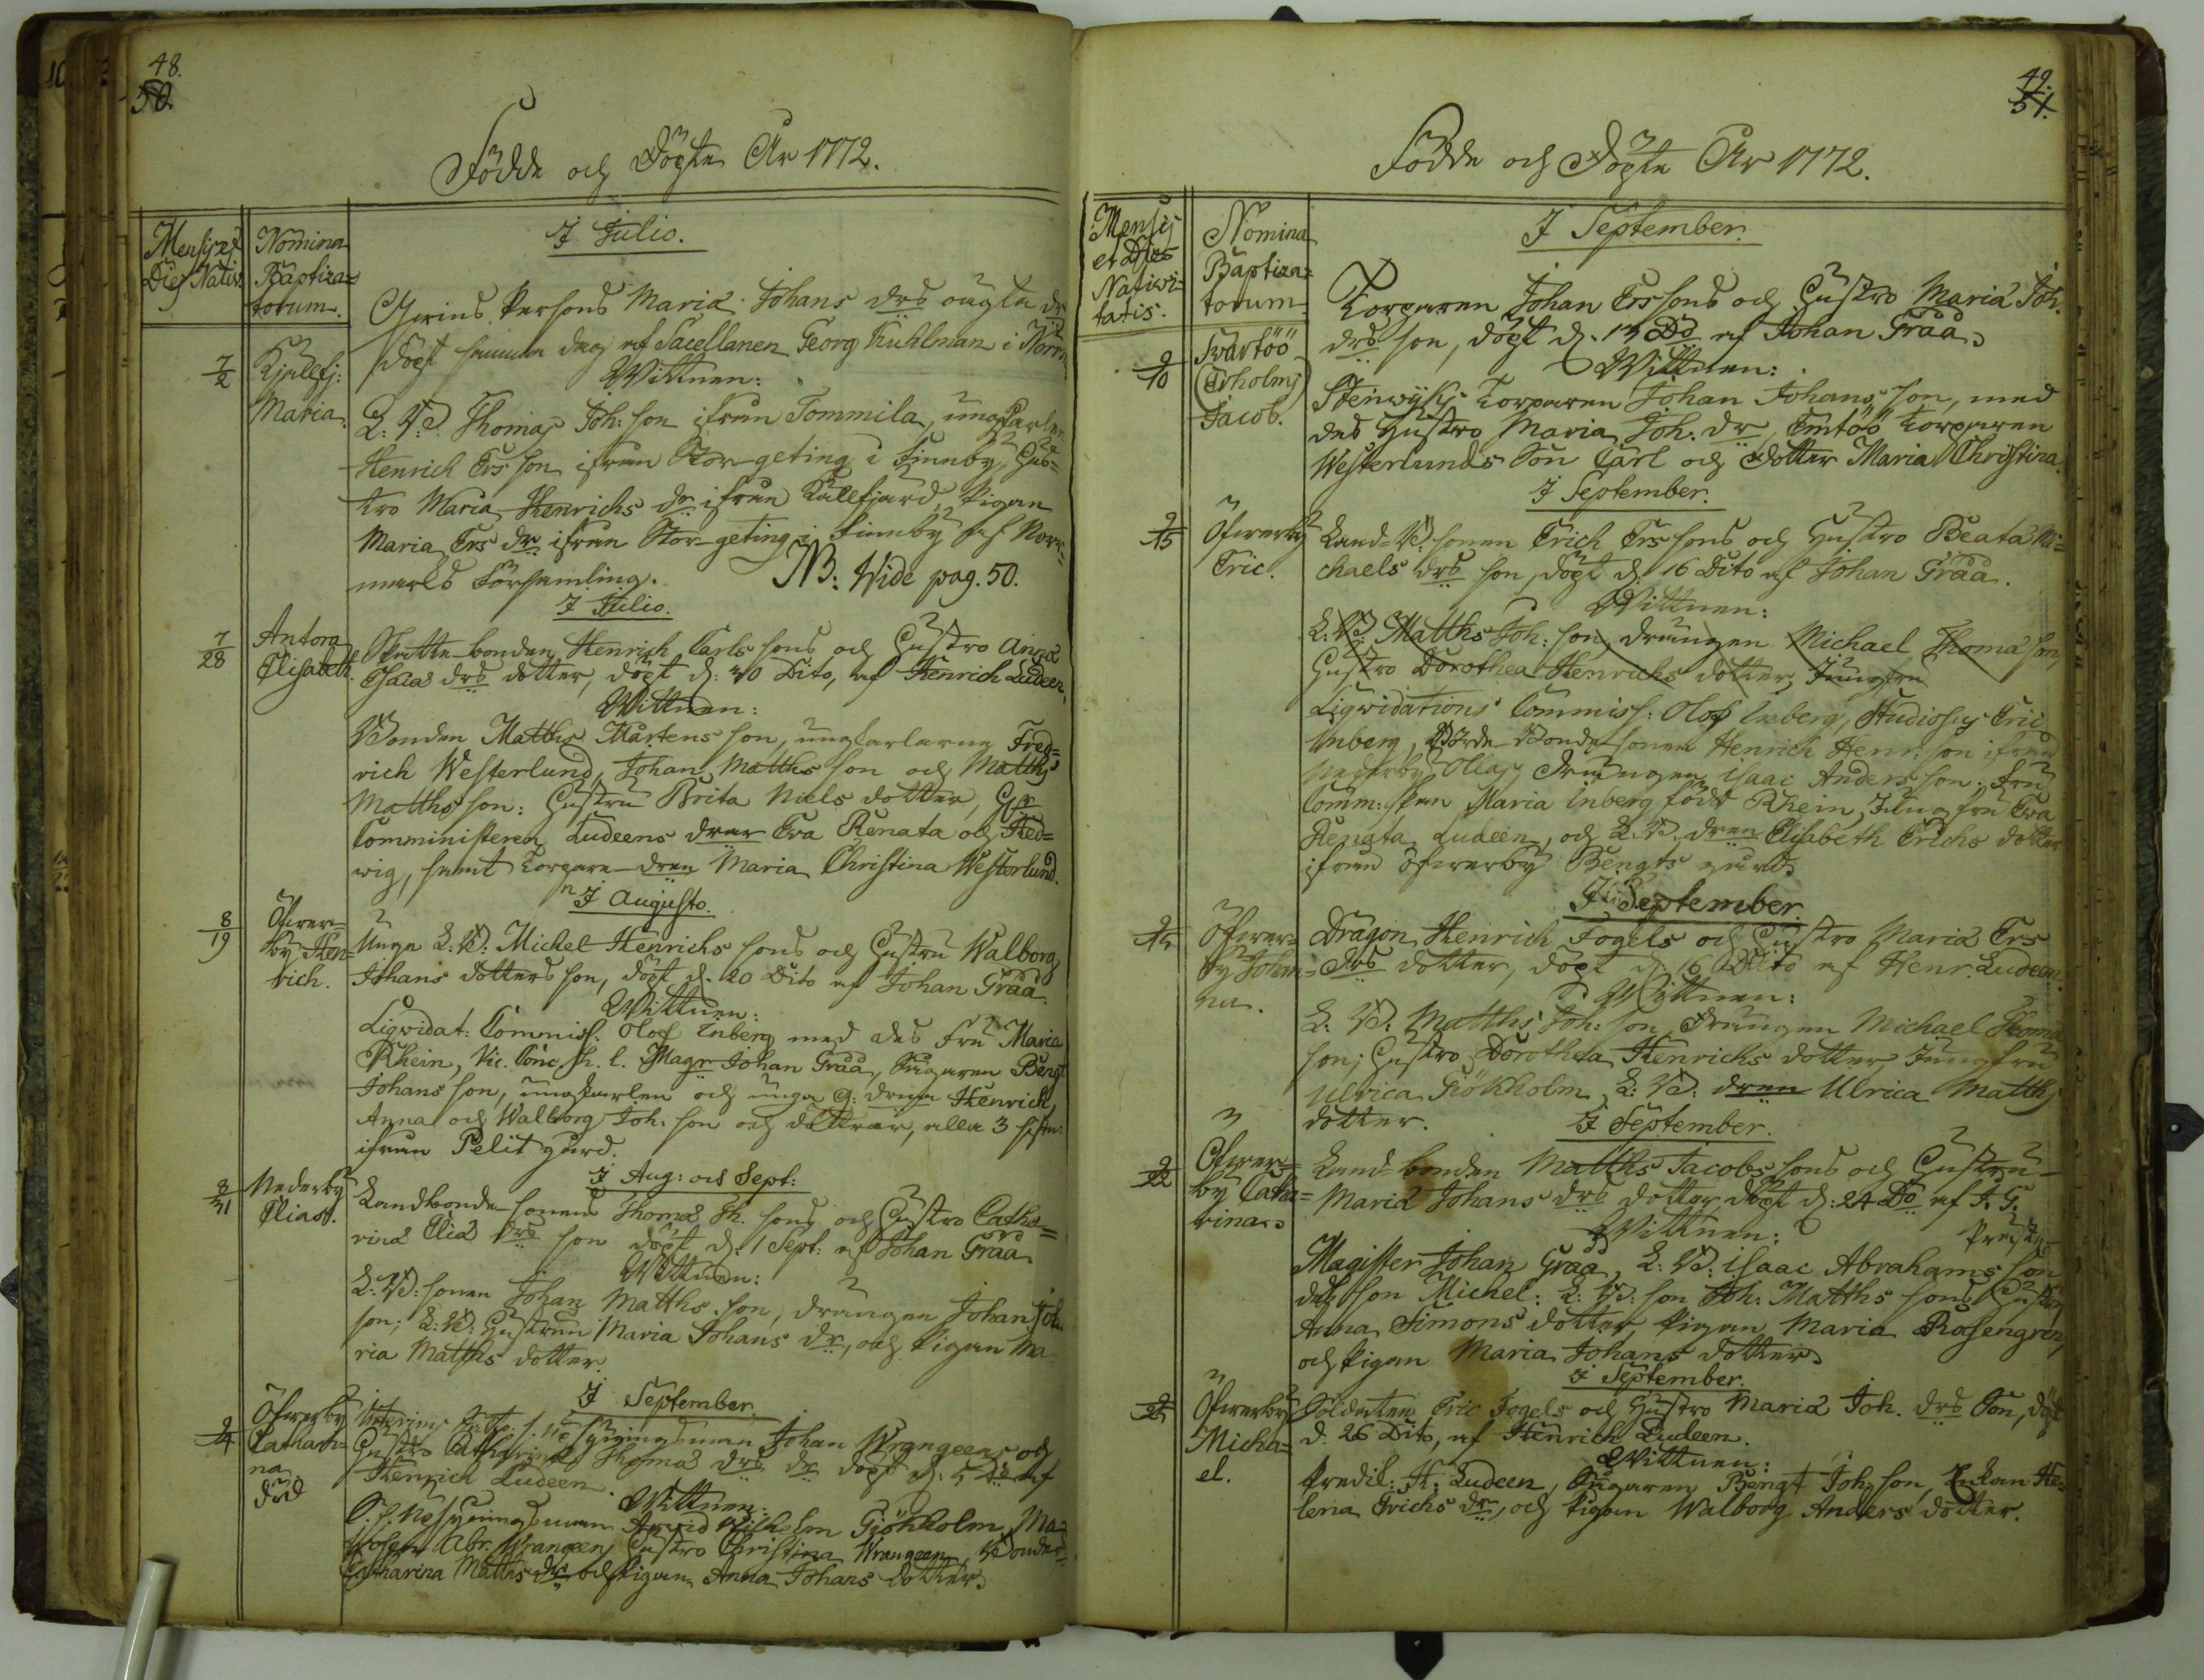 48.
50.
Födde och Döpte År 1772.
Mensis et Dies Nativ.
Nomina Baptiza=
torum.
I Julio.
7/2
Kjälefj:
Maria.
Grins Persons Maria Johans drs oägta dr
döpt samma dag af Sacellanen Georg Kuhlman i Norrm
Wittnen:
L: B: Thomas Joh: son ifrån Tommila, ungkarlen
Henrich Ers son ifrån Stor-geting i Finnby, Hus=
tro Maria Henrichs dr ifrån Källfjärd, Pigan
Maria Ers dr ifrån Stor-geting i Finnby af Norr=
marks Församling. NB: Wide pag. 50.
I Julio.
7/28
Antora
Elisabeth.
Skatte-bonden Henrich Carls sons och Hustro Anna
Esaias drs dotter, döpt d: 30 Dito, af Henrich Ludeen,
Wittnen:
Bonden Matths Mårtens son, ungkarlarne Fred=
rich Westerlund, Johan Matths son och Matths
Matths son: Hustru Brita Niels dotter, Hr
Comministeren Ludeens drar Eva Renata och Hed=
wig, samt Torpare-dren Maria Christina Westerlund.
I Augusto.
8/19
Öfwer=
by Hen=
rich.
Unga L: B: Michel Henrichs sons och Hustru Walborg
Johans dotters son, döpt d. 20 Dito af Johan Graa.
Wittnen:
Liqwidat: Commiss: Olof Enberg med des Fru Maria
Rhein, Vic. Conc. h. l. Magr Johan Graa, Rügaren Bengt
Johans son, ungkarlen och unga g: drna Henrich,
Anna och Walborg Joh: son och döttrar, alla 3 sistn:
ifrån Pelit gård.
I Aug: och Sept:
8/31
Nederby
Elias.
Landbonde-sonens Thomas Th. sons och Hustro Catha=
rina Elias drs son döpt d: 1 Sept: af Johan Graa
Wittnen:
L: B: sonen Johan Matths son, drängen Johan Joh
son; L: B: Hustrun Maria Johans dr, och Pigan Ma=
ria Matths dotter.
I September.
9/4
Öfwerby
Cathari=
na
död
Johan Wrangeens och
Hustro Catharina Thomas drs dr döpt d. 5 Do af
Henrich Ludeen.
Wittnen:
Arvid Wilhelm Giökholm, Ma=
Abr. Wrangeen, Hustro Christina Wrangeen, Bonde
Catharina Matths dr och Pigan Anna Johans dotter.
49.
51.
Födde och Döpte År 1772.
Mensis
et Dies
Nativi=
tatis.
Nomina
Baptiza=
torum
I September.
9/10
Swartöö
(Erholms)
Jacob.
Torparen Johan Ers sons och Hustro Maria Joh.
drs son, döpt d. 13 Do af Johan Graa.
Wittnen:
Stenwijks Torparen Johan Johans son, med
des Hustro Maria Joh. dr, Emtöö Torparen
Westerlunds Son Carl och dotter Maria Christina.
I September.
9/15
Öfwerby
Eric.
Land-B: sonen Erich Ers sons och Hustro Beata Mi=
chaels drs son, döpt d. 16 Dito af Johan Graa.
Wittnen:
L: B: Matths Joh: son, drängen Michael Thoma son,
Hustro Dorothea Henrichs dotter, Jungfru
Liqwidations Commiss: Olof Enberg, Studiosus Eric
Enberg, Bonde-sonen Henrich Henr: son ifrån
Nederby Ollas, drängen Isaac Anders son; Fru
Comm: skan Maria Enberg född Rhein, Jungfru Eva
Renata Ludeen, och L. B. dren Elisabeth Erichs dotter
ifrån Öfwerby Bengts gård.
I September.
9/15
Öfwer=
by Johan=
na.
Dragon Henrich Fogels och Hustro Maria Ers
drs dotter, döpt d. 16 Dito af Henr. Ludeen.
Wittnen:
L: B: Matths Joh: son, Drängen Michael Thoma
son; Hustro Dorothea Henrichs dotter, Jungfru
Ulrica Giökholm, L: B: dren Ulrica Matths
dotter.
I September.
9/22
Öfwer=
by Catha=
rina.
Land-bonden Matths Jacobs sons och Hustru
Maria Johans drs dotter, döpt d: 24 Do af J. G.
Wittnen:
Magister Johan Graa, L: B: Isaac Abrahams son
des son Michel: L: B: son Joh: Matths sons Hustro
Anna Simons dotter, Pigan Maria Rosengren,
och Pigan Maria Johans dotter.
I September.
9/25
Öfwerby
Micha=
el.
Soldaten Eric Fogels och Hustro Maria Joh. drs Son, döpt
d. 26 Dito, af Henrich Ludeen.
Wittnen:
Predik: H. Ludeen, Rügaren Bengt Joh: son, Enkan He=
lena Erichs dr, och Pigan Walborg Anders dotter.